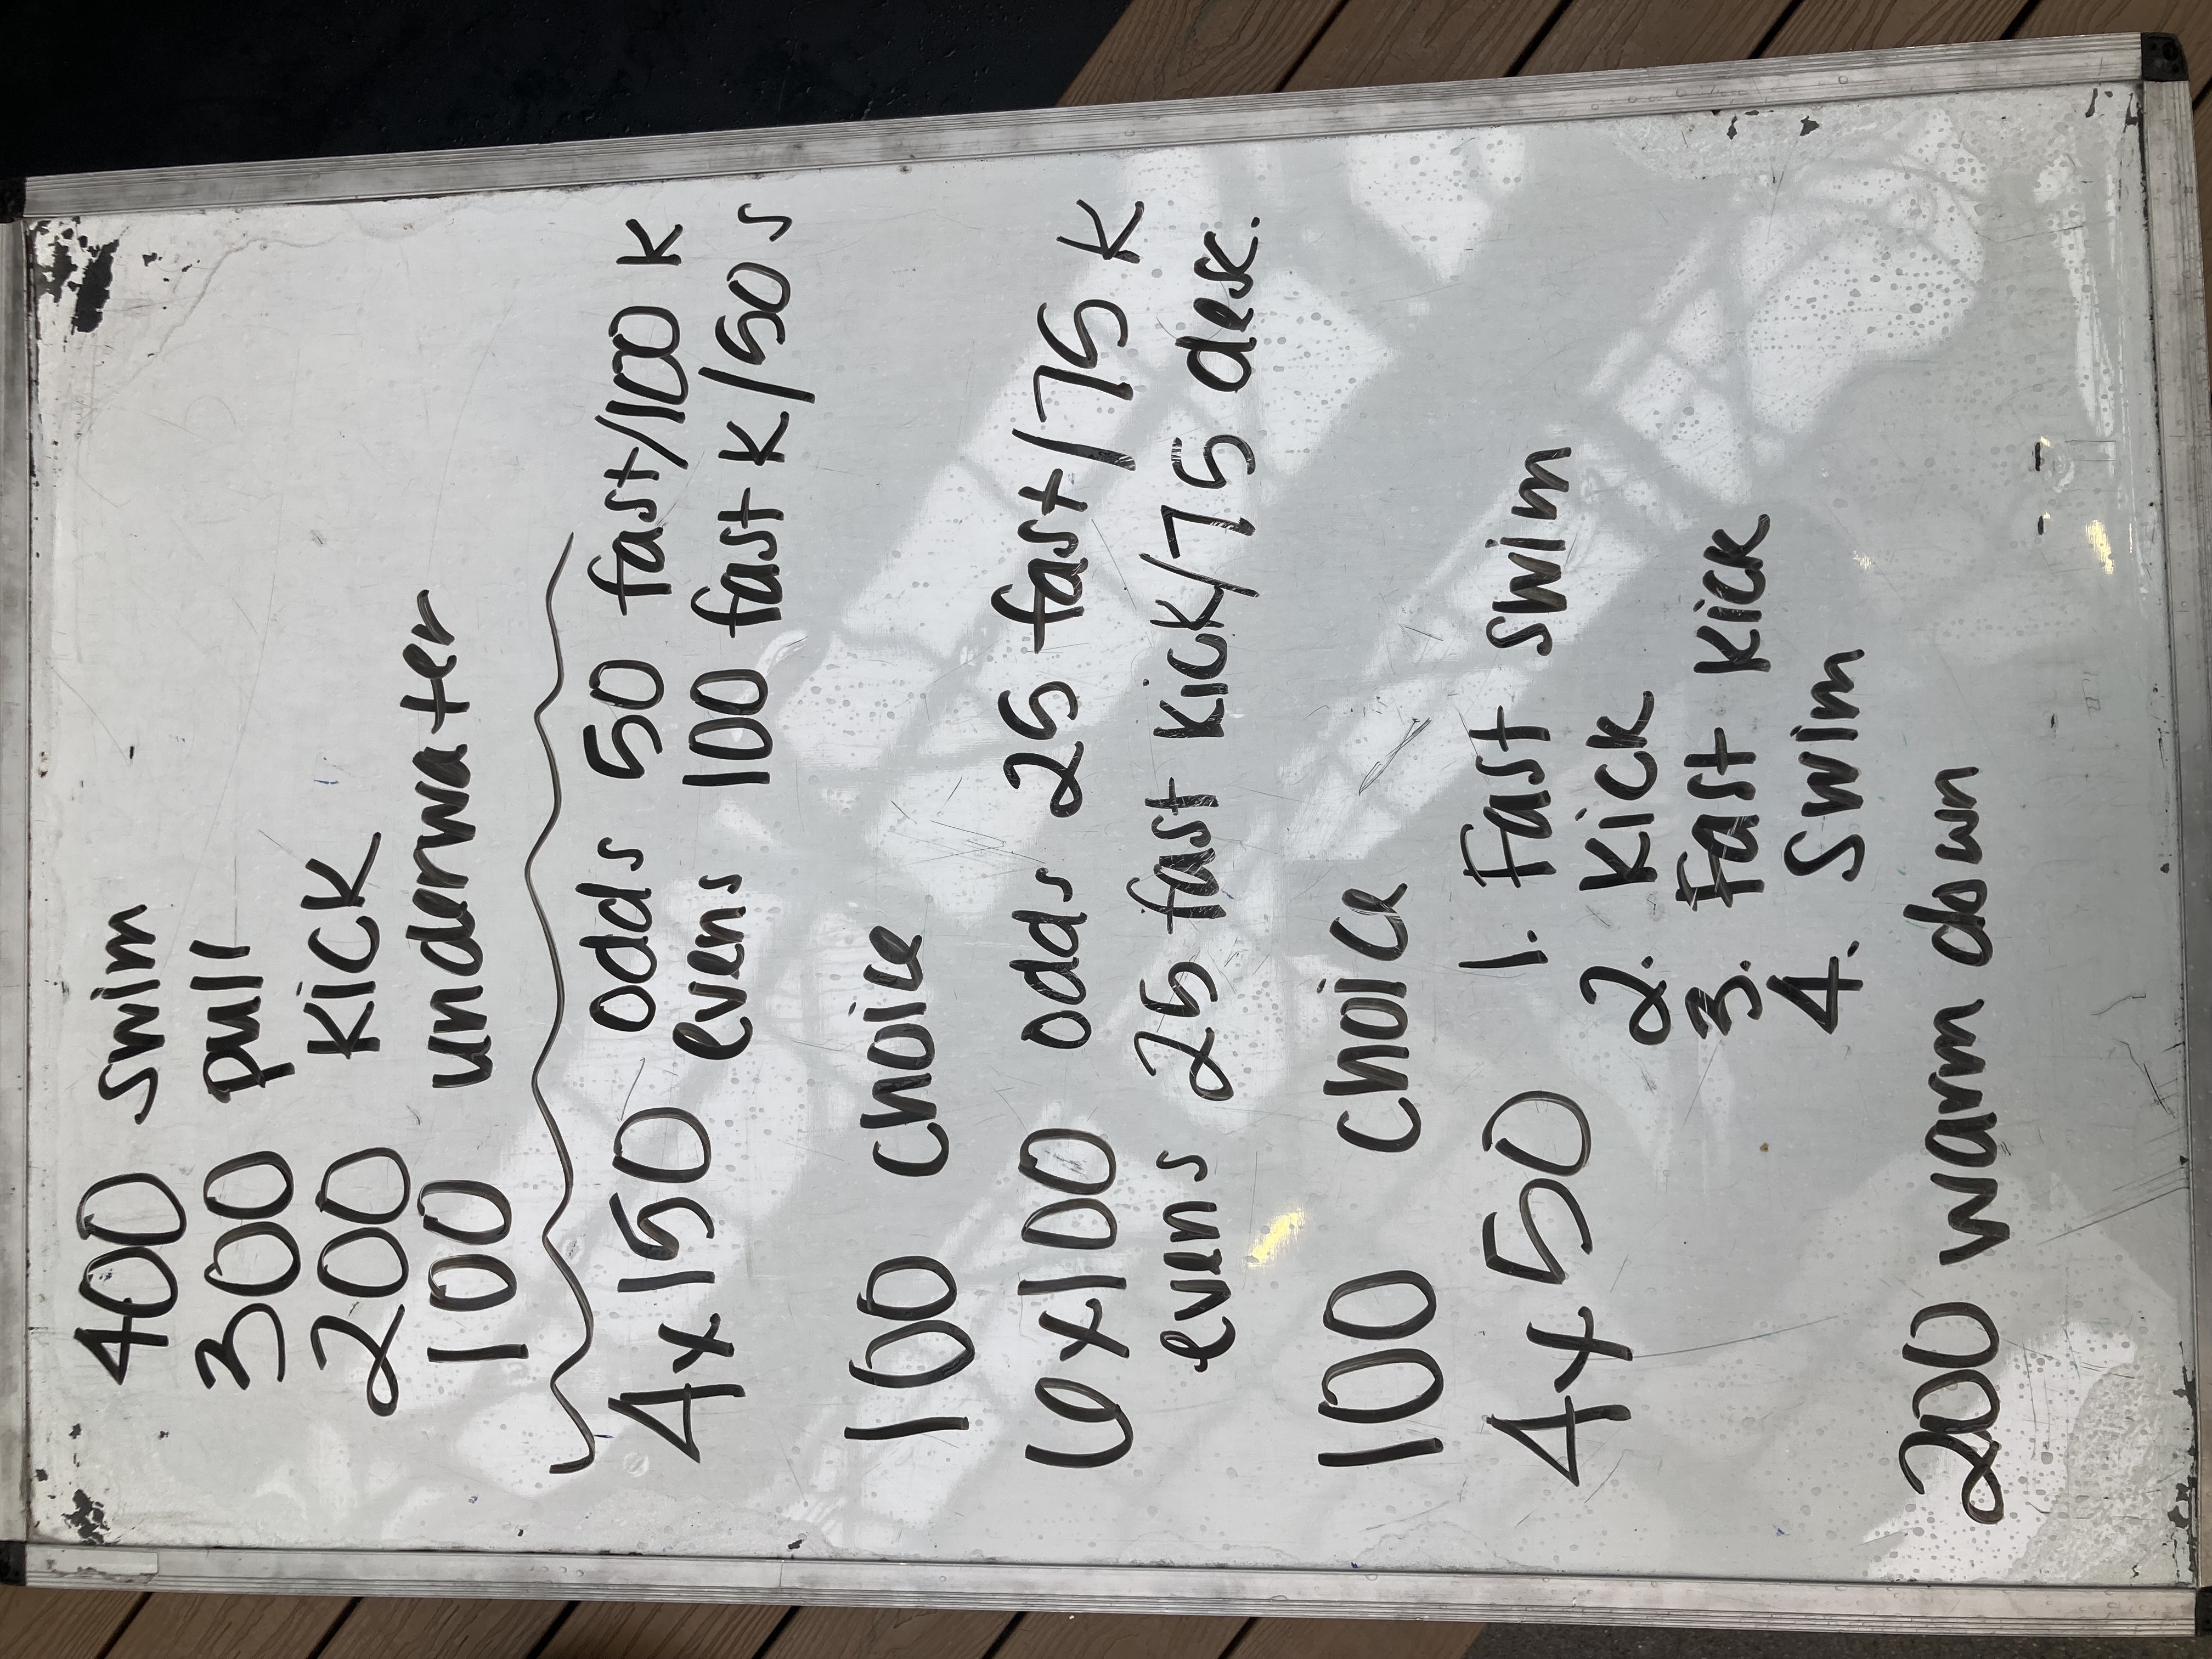 400 swim
300 pull
200 kick
100 underwater
4x150 odds 50 fast/100 k
evens 100 fast k/50 s
100 choice
6x100 odds 25 fast/75 k
evens 25 fast kick/75 desc.
100 choice
4x50 1. Fast swim
2. Kick
3. Fast kick
4. Swim
200 warm down